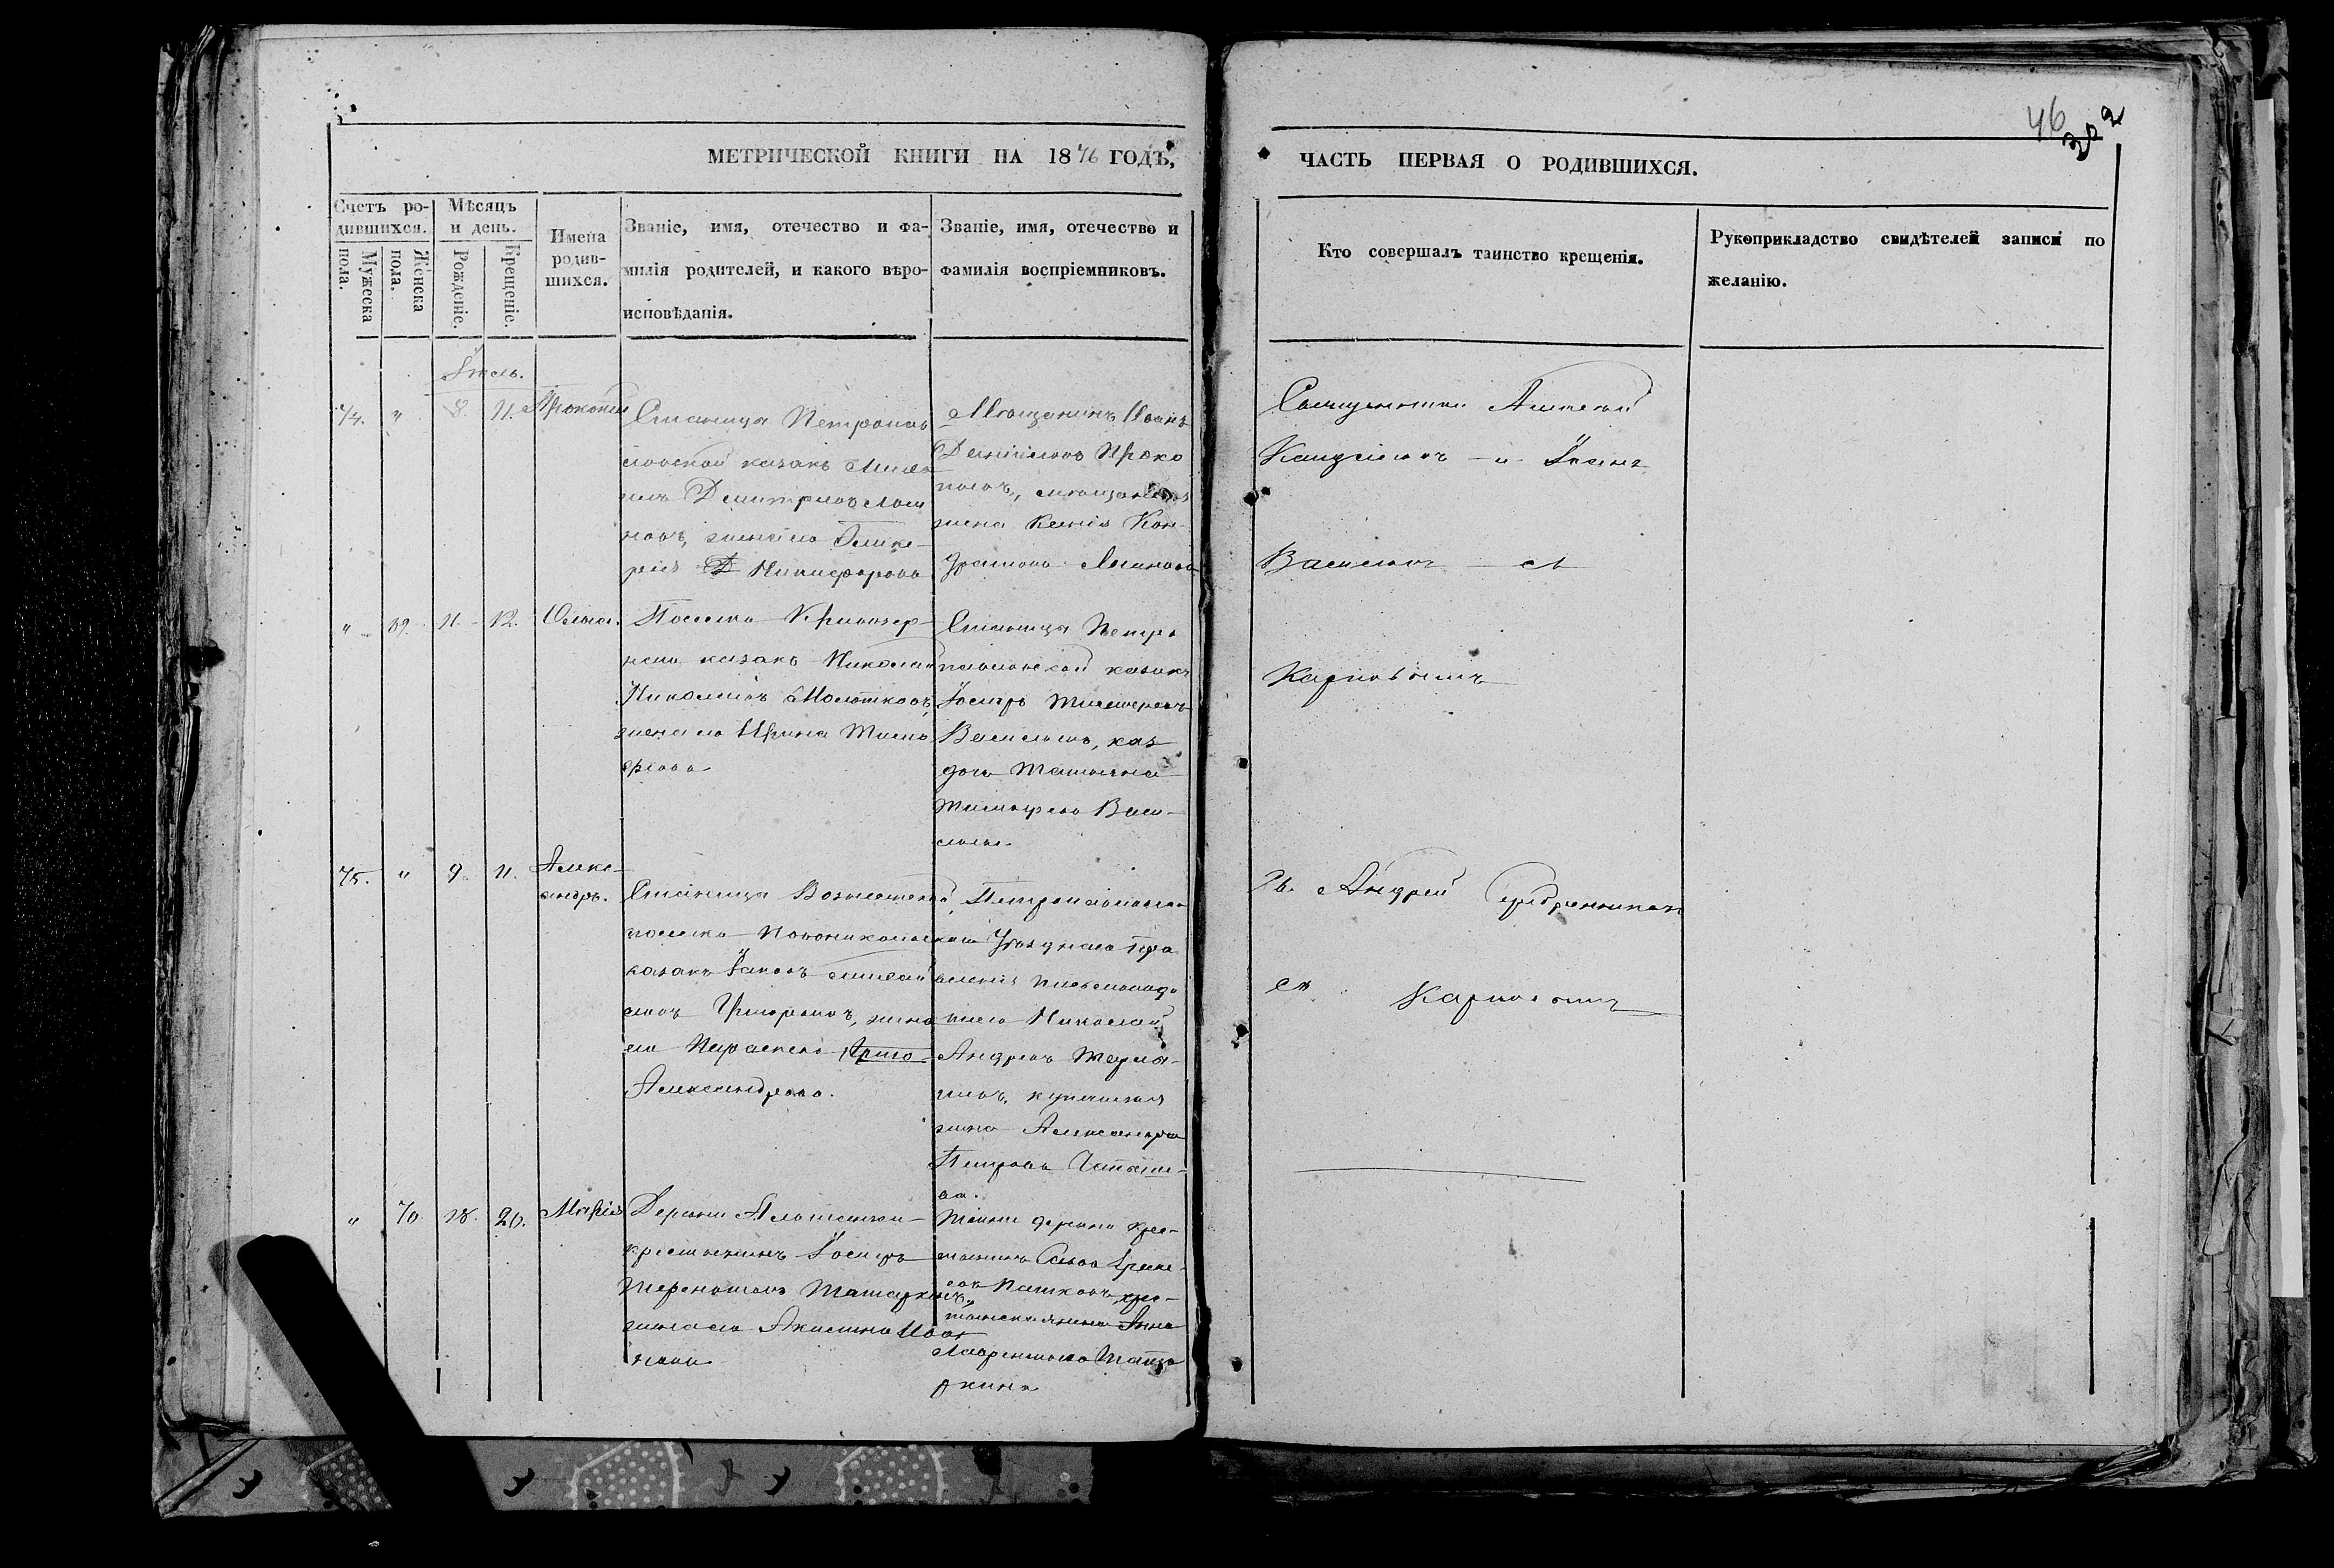 46
302
МЕТРИЧЕСКОЙ КНИГИ НА 1876 ГОДЪ,
ЧАСТЬ ПЕРВАЯ О РОДИВШИХСЯ.
Счетъ ро-
дившихся.
Мужеска
пола.
Женска
пола.
Мѣсяцъ
и день.
Рожденіе.
Крещеніе.
Имена
родив-
шихся.
Званіе, имя, отечество и фа-
милія родителей, и какого вѣро-
исповѣданія.
Званіе, имя, отечество и
фамилія воспріемниковъ.
Кто совершалъ таинство крещенія.
Рукоприкладство свидѣтелей записи по
желанію.
Іюль.
74. " 8. 11. Прокопій
Станица Петропав
ловской казакъ
Дмитріевъ
Никифорова
Мѣщанинъ Иванъ
Проко
мѣщанская
жена Ксенія Кон-
дратова
Священники Алексѣй
и Іоаннъ
Васильевъ съ
Карповымъ
" 69. 11. 12. Ольга.
Поселка Кривозер-
наго казакъ Николай
Николаевъ Молотковъ,
жена его Ирина Тимо
феева
Станица Петро
павловской казакъ
Іосифъ Тимофеевъ
Васильевъ, каз
дочь Татьяна
Тимофеева Васи-
льева.
75. " 9. 11. Алекс-
андръ.
Станица Вознесенской
поселка Новоникольскаго
казакъ Яковъ
Григорьевъ, жена
его Параскева Григо
Александрова.
Петропавловскаго
Уѣзднаго Пра
вленія письмоводи
тель Николай
Андреевъ
купеческая
жена Александра
Петрова
ва.
Св. Андрей Серебренниковъ
съ Карповымъ
" 70. 18. 20. Марія
Деревни
крестьянинъ Іосифъ
Терентьевъ Татаркинъ,
жена его Акилина Иван
нова
Тойже деревни крес-
тьянинъ Савва
Пашковъ, крес-
тьянская жена Анна
Лаврентьева Тата
ркина